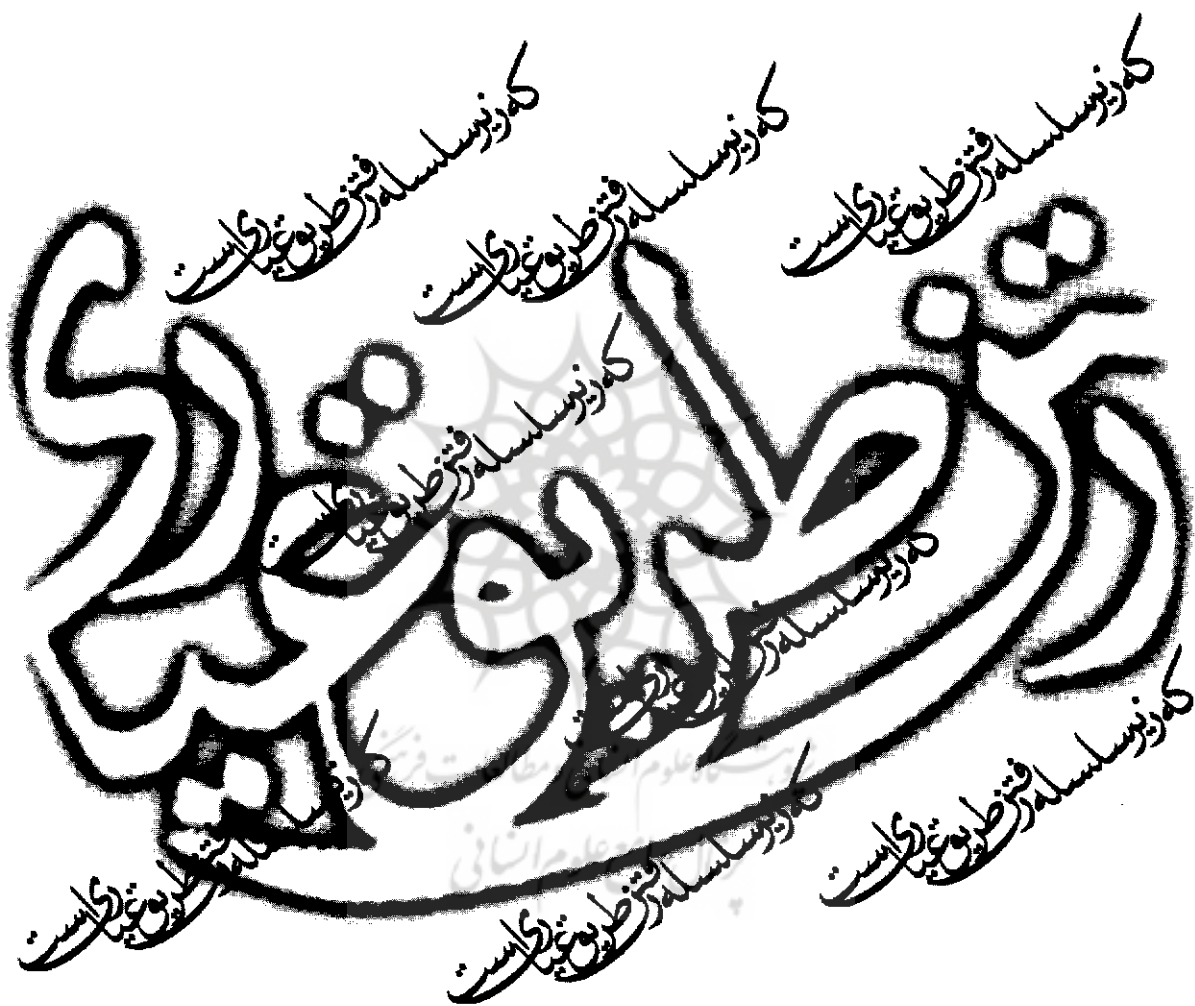 که زیر سلسله رفتن طریق عیاری است
که زیر سلسله رفتن طریق عیاری است
که زیر سلسله رفتن طریق عیاری است
رفتن طریق عیاری
که زیر سلسله رفتن طریق عیاری است
که زیر سلسله رفتن طریق عیاری است
که زیر سلسله رفتن طریق عیاری است
که زیر سلسله رفتن طریق عیاری است
که زیر سلسله رفتن طریق عیاری است
پژوهشگاه علوم انسانی و مطالعات فرهنگی
پرتال جامع علوم انسانی